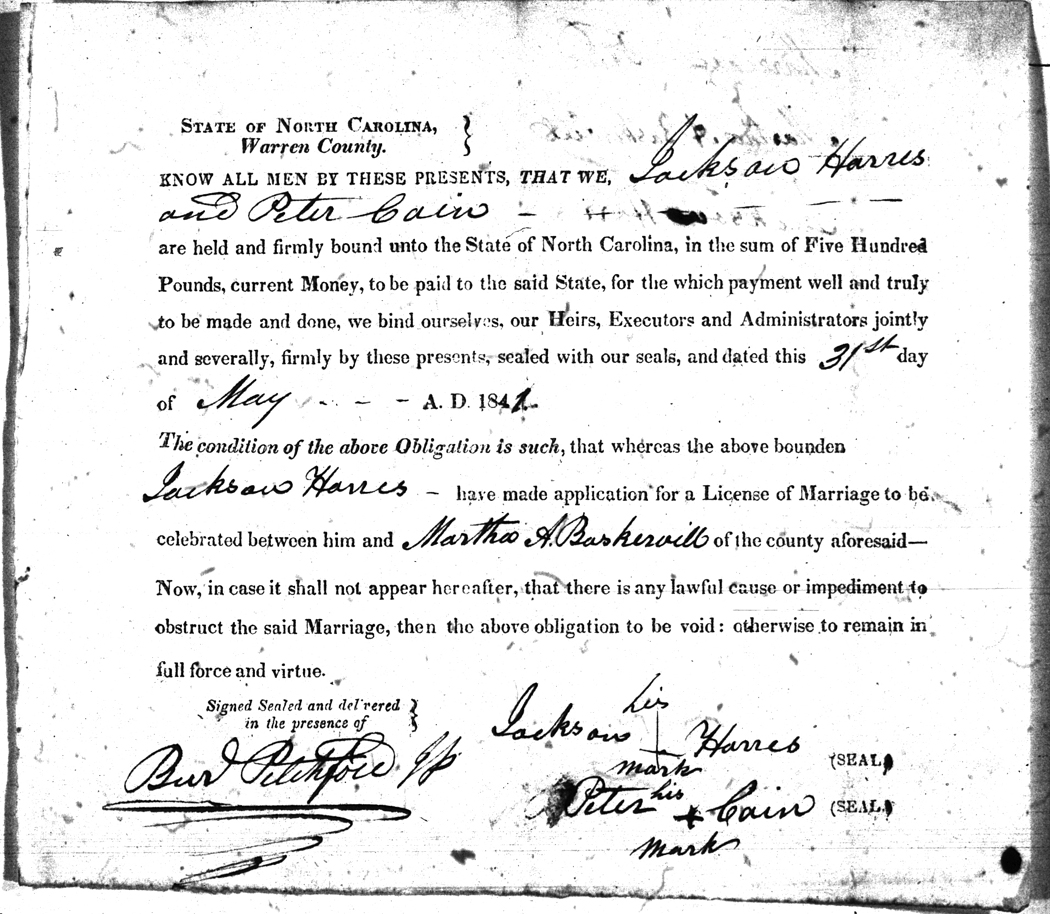 STATE OF NORTH CAROLINA,
Warren County.
KNOW ALL MEN BY THESE PRESENTS, THAT WE, Jackson Harres
and Peter Cain
are held and firmly bound unto the State of North Carolina, in the sum of Five Hundred
Pounds, current Money, to be paid to the said State, for the which payment well and truly
to be made and done, we bind ourselves, our Heirs, Executors and Administrators jointly
and severally, firmly by these presents, sealed with our seals, and dated this 31st day
of May - - - A. D. 1841.
The condition of the above Obligation is such, that whereas the above bounden
Jackson Harres - have made application for a License of Marriage to be
celebrated between him and Martha A. Baskervill of the county aforesaid—
Now, in case it shall not appear hereafter, that there is any lawful cause or impediment to
obstruct the said Marriage, then the above obligation to be void: otherwise to remain in
full force and virtue.
Signed Sealed and delivered
in the presence of
Jackson his mark Harres (SEAL)
Peter his + mark Cain (SEAL)
Burl Pitchford JP